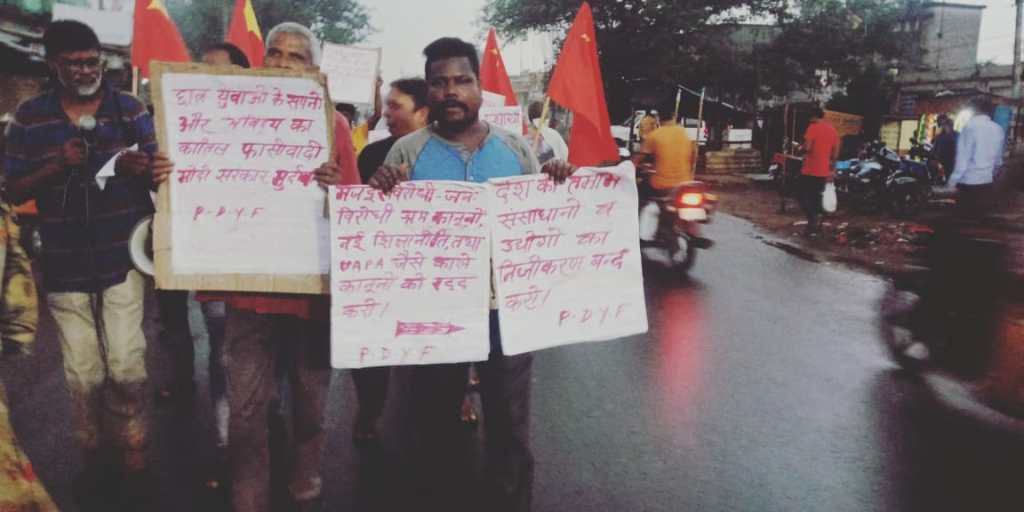 छात्र युवाओ के सपनों
और भविष्य का
कातिल फासीवादी
मोदी सरकार मुर्दाबाद
P-D-Y-F
मजदूर विरोधी-जन
विरोधी श्रम कानूनो,
नई शिक्षानीति, तथा
UAPA जैसे काले
कानूनों को रद्द
करो।
P-D-Y-F
देश का तमाम
संसाधानो व
उद्योगो का
निजीकरण बन्द
करो।
P-D-Y-F